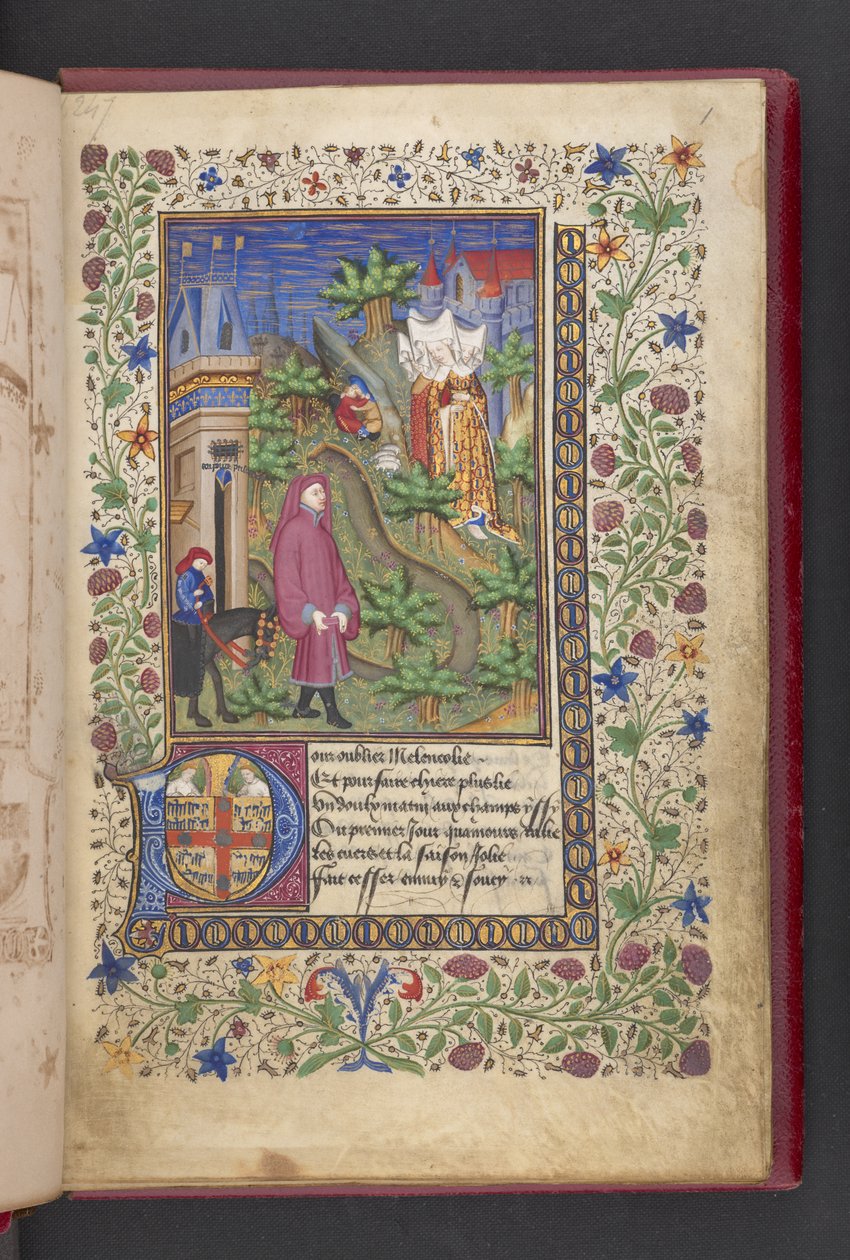 247
1
Pour oublier Melencolie
Et pour faire chiere plus lie
Un doulx matin aux champs yssy
Ou premier Jour quamours ralie
Les cuers et la saison Jolie
Fait cesser ennuy & soucy